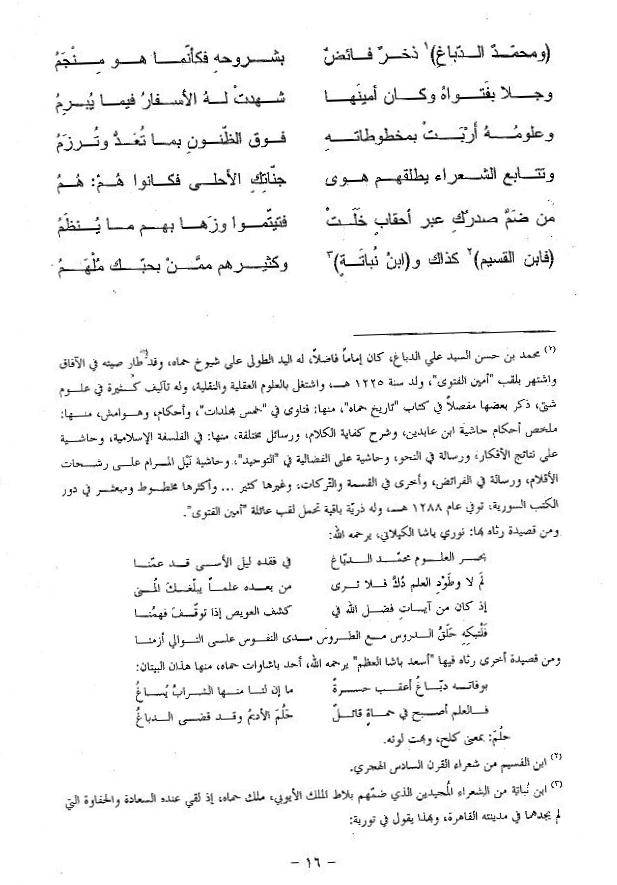 (ومحمّد الدّباغ)¹ ذخرٌ فائضٌ بشروحهِ فكأنّما هو مِنْجَمُ
وجلا بفَتواهُ وكان أمينَها شهدتْ لهُ الأسفارُ فيما يُبرِمُ
وعلومُهُ أرْبَتْ بمخطوطاتهِ فوق الظّنونِ بما تُعَدُّ وتُرزَمُ
وتتابع الشعراء يطلقهم هوى جنّاتِكِ الأحلى فكانوا هُمْ: هُمُ
من ضمَّ صدركِ عبر أحقابٍ خَلَتْ فتيتّموا وزهَا بهم ما يُنظَمُ
(فابن القسيم)² كذاك و(ابنُ نُباتَةٍ)³ وكثيرهم ممّنْ بحبّك مُلْهَمُ
(٢) محمد بن حسن السيد علي الدباغ، كان إماماً فاضلاً، له اليد الطولى علي شيوخ حماه، وقد طار صيته في الآفاق
واشتهر بلقب "أمين الفتوى"، ولد سنة ١٢٢٥ هـ، واشتغل بالعلوم العقلية والنقلية، وله تآليف كثيرة في علوم
شتى، ذكر بعضها مفصلاً في كتاب "تاريخ حماه"، منها: فتاوى في "خمس مجلدات"، وأحكام، وهوامش، منها:
ملخص أحكام حاشية ابن عابدين، وشرح كفاية الكلام، ورسائل مختلفة، منها: في الفلسفة الإسلامية، وحاشية
علي نتائج الأفكار، ورسالة في النحو، وحاشية على الفضالية في "التوحيد"، وحاشية نَيْل المرام على رشحات
الأقلام، ورسالة في الفرائض، وأخرى في القسمة والتركات، وغيرها كثير ... وأكثرها مخطوط ومبعثر في دور
الكتب السورية، توفي عام ١٢٨٨ هـ، وله ذريّة باقية تحمل لقب عائلة "أمين الفتوى".
ومن قصيدة رثاه بها: نوري باشا الكيلاني، يرحمه الله:
بحر العلوم محمّد الدبّاغ في فقده ليل الأسى قد عمّنا
لم لا وطَودِ العلم دُكَّ فلا ترى من بعده علماً يبلّغك المُنى
إذ كان من آيات فضل الله في كشف العويص إذا توقّف فهمُنا
فَلْتبكِه حَلَقُ الدروس مع الطروس مدى النفوس على التوالي أزمنا
ومن قصيدة أخرى رثاه فيها "أسعد باشا العظم" يرحمه الله، أحد باشاوات حماه، منها هذان البيتان:
بوفاته دبّاغُ أعقب حسرةً ما إن لنا منها الشرابُ يُساغُ
فالعلم أصبح في حماةٍ قاتلٌ حَلُمَ الأديمُ وقد قضى الدباغُ
حلُمَ: بمعنى كلح، وبهت لونه.
(٢) ابن القسيم من شعراء القرن السادس الهجري.
(٣) ابن نُباتة من الشعراء المُجيدين الذي ضمّهم بلاط الملك الأيوبي، ملك حماه، إذ لقي عنده السعادة والحفاوة التي
لم يجدهما في مدينته القاهرة، وبهذا يقول في تورية:
- ١٦ -